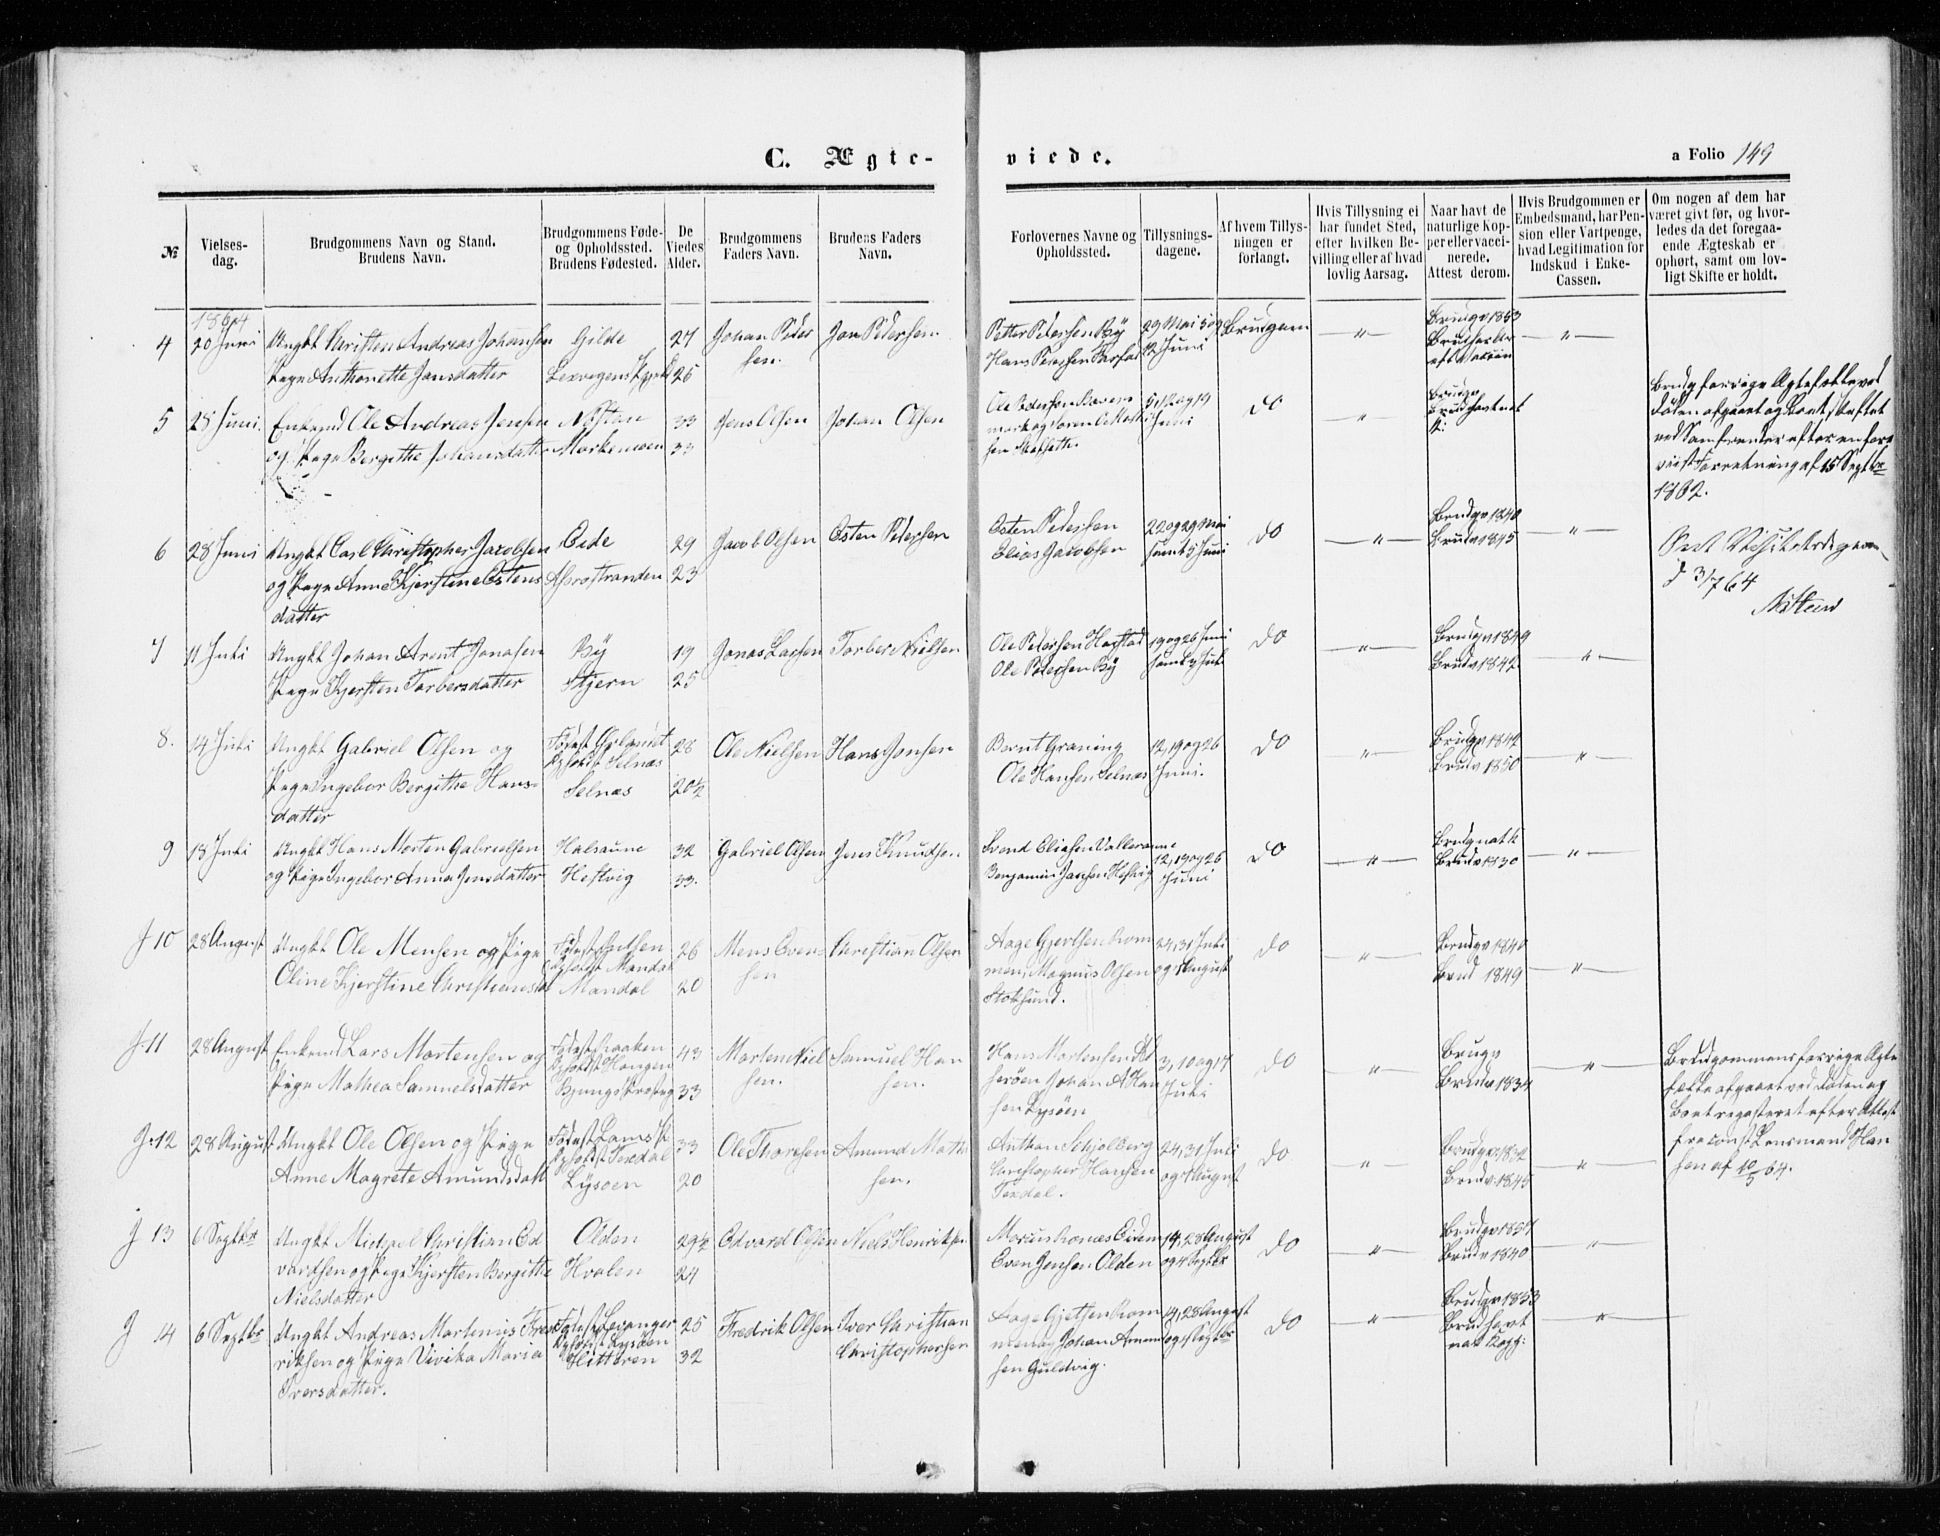 C. Ægte-
viede.
a Folio 149
№
Vielses-
dag.
Brudgommens Navn og Stand.
Brudens Navn.
Brudgommens Føde-
og Opholdssted.
Brudens Fødested.
De
Viedes
Alder.
Brudgommens
Faders Navn.
Brudens Faders
Navn.
Forlovernes Navne og
Opholdssted.
Tillysnings-
dagene.
Af hvem Tillys-
ningen er
forlangt.
Hvis Tillysning ei
har fundet Sted,
efter hvilken Be-
villing eller af hvad
lovlig Aarsag.
Naar havt de
naturlige Kop-
per eller vacci-
nerede.
Attest derom.
Hvis Brudgommen er
Embedsmand, har Pen-
sion eller Vartpenge,
hvad Legitimation for
Indskud i Enke-
Cassen.
Om nogen af dem har
været givt før, og hvor-
ledes da det foregaa-
ende Ægteskab er
ophørt, samt om lov-
ligt Skifte er holdt.
1864
4
20 Juni
Ungkl Christen Andreas Johansen
Pige Anthonette Jansdatter
Gilde
27
25
Johan Peder
sen.
Jan Pedersen
Petter Pedersen By
Hans Pedersen
29 Mai 5 og
12 Juni
Brudgom
"
Brudgv 1853
"
5
28 Juni.
Enkemd Ole Andreas Jensen
og Pige Bergitte Johansdatter
33
33
Jens Olsen
Johan Olsen
Ole Pedersen
5, 12 og 19
Juni
do
"
Brudg forrige Ægtefælle ved
Døden afgaaet og Boet skiftet
ved Samfrender efter en fore
viist Forretning af 15 Septbr
1862.
6
28 Juni
Ungkl Carl Christopher Jacobsen
og Pige Anne Kjerstine Ostens
datter
Eide
29
23
Jacob Olsen
Osten Pedersen
Osten Pedersen
Elias Jacobsen
22 og 29 Mai
samt 5 Juni
do
"
Brudgv 1840
Brudv 1845
"
d 3/7 64
7
11 Juli
Ungkl Johan Arent Jonasen
Pige Kjersten Torbersdatter
By
Stjern
19
25
Jonas Larsen
Torber Nielsen
Ole Petersen Harstad
Ole Pedersen By
19 og 26 Juni
do
"
Brudgv 1849
Brudv 1842
"
8.
14 Juli
Ungkl Gabriel Olsen og
Pige Ingebor Bergithe Hans-
datter
Født Ørlandet
Opholdst Selnæs
Selnæs
28
20½
Ole Nielsen
Hans Jonsen
Bernt Graning
Ole Hansen Selnæs
12, 19 og 26
Juni.
do
"
Brudgv 1842
Brudv 1850
"
9
18 Juli
Ungkl Hans Morten Gabrielsen
og Pige Ingebor Anna Jensdatter
Halsaune
Heftvig
32
33.
Gabriel Olsen
Jens Knudsen
Svend Eliasen Valleraune
Benjamin Jansen Heftvig
12, 19 og 26
Juni
do
"
Brudg nat k
Brudv 1830
"
J 10
28 August
Ungkl Ole Mensen og Pige
Oline Kjerstine Christiansd
Opholdst Mandal
Mandal
26
20
Mens Even-
sen
Christian Olsen
Aage Gjertsen Krom
men, Magnus Olsen
Stoksund.
24, 31 Juli
og August
do
"
Brudgv 1840
Brud 1849
"
J. 11
28 August
Enkemd Lars Mortensen og
Pige Mathea Samuelsdatter
43
33
Morten Niel
sen.
Samuel Han
sen.
Hans Mortensen
Johan A Han
sen Lysøen
3, 10 og 17
Juli
do
"
Brugv
Brudv 1834
"
Brudgommens forrige Ægte
fælle afgaaet ved Døden og
Boet registeret efter Attest
fra const Lensmand Han
sen af 10/5 64.
J. 12
28 August
Ungkl Ole Olsen og Pige
Anne Magrete Amundsdatt
Opholdst Texdal
Lysøen
33
20
Ole Thoresen
Amund Math
sen.
Anthon Schjelberg
Christopher Hansen
Texdal.
24, 31 Juli
og August
do
"
Brudgv 1832
Brudv 1845
"
J 13
6 Septbr
Ungkl Michael Christian Ed
vardsen og Pige Kjersten Bergitte
Nielsdatter
Olden
Hvalen
29½
24
Edvard Olsen
Niels Henriksen
Even Jensen Olden
14, 28 August
og 4 Septbr
do
"
Brudgv 1857
Brudv 1840
"
J 14
6 Septbr
Ungkl Andreas Martenius Fred
riksen og Pige Vivika Maria
Iversdatter.
Født Levanger
Opholdst Lysøen
Hitteren
25
32
Fredrik Olsen
Iver Christian
Christophersen
Aage Gjetsen Krom
men og Johan Amund
sen Guldvig.
14, 28 August
og 4 Septbr
do
"
Brudgv 1853
Brud havt
nat Kopp:
"